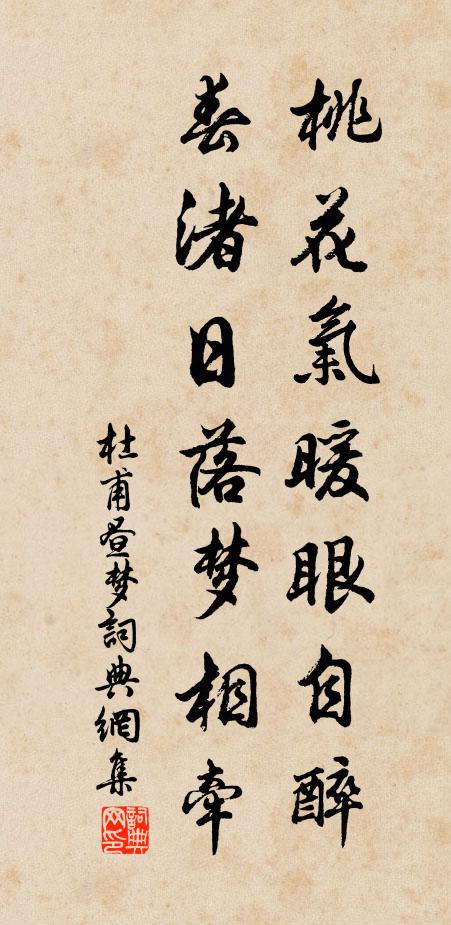 桃花氣暖眼自醉
春渚日落梦相牽
杜甫昼梦詞典網集
詞典网印